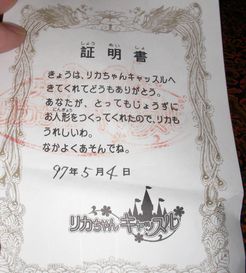 しょう めい しょ
証明書
きょうは、リカちゃんキャッスルへ
きてくれてどうもありがとう。
あなたが、とってもじょうずに
お人形をつくってくれたので、リカも
にんぎょう
うれしいわ。
なかよくあそんでね。
97年5月4日
リカちゃんキャッスル